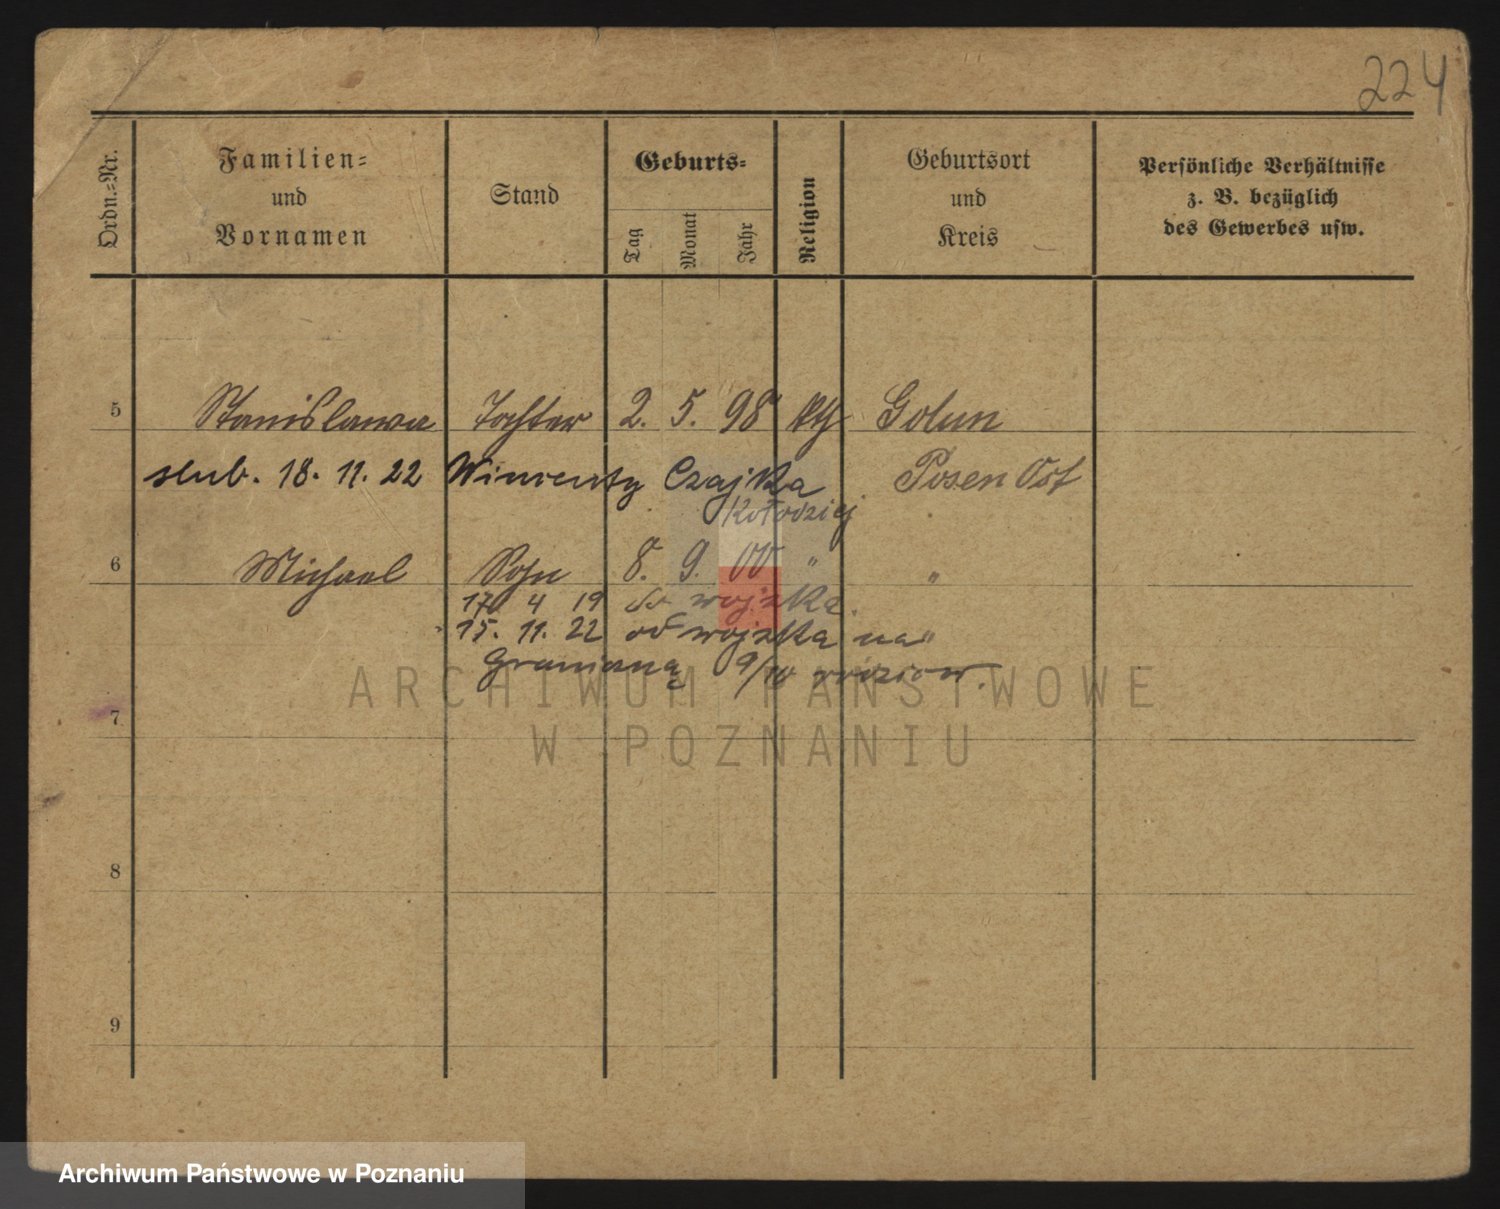 224
Ordn.-Nr.
Familien-
und
Vornamen
Stand
Geburts-
Tag
Monat
Jahr
Religion
Geburtsort
und
Kreis
Persönliche Verhältnisse
z. B. bezüglich
des Gewerbes usw.
5 Stanislawa Tochter 2. 5. 98 kth Golun
slub. 18. 11. 22 Wincenty Czajka Posen Ost
Kołodziej
6 Michael Sohn 8. 9. 00 " "
17 4 19 do wojska.
15. 11. 22 od wojska na
Graniczną 9/10 rodziców.
7
8
9
ARCHIWUM PAŃSTWOWE
W POZNANIU
Archiwum Państwowe w Poznaniu